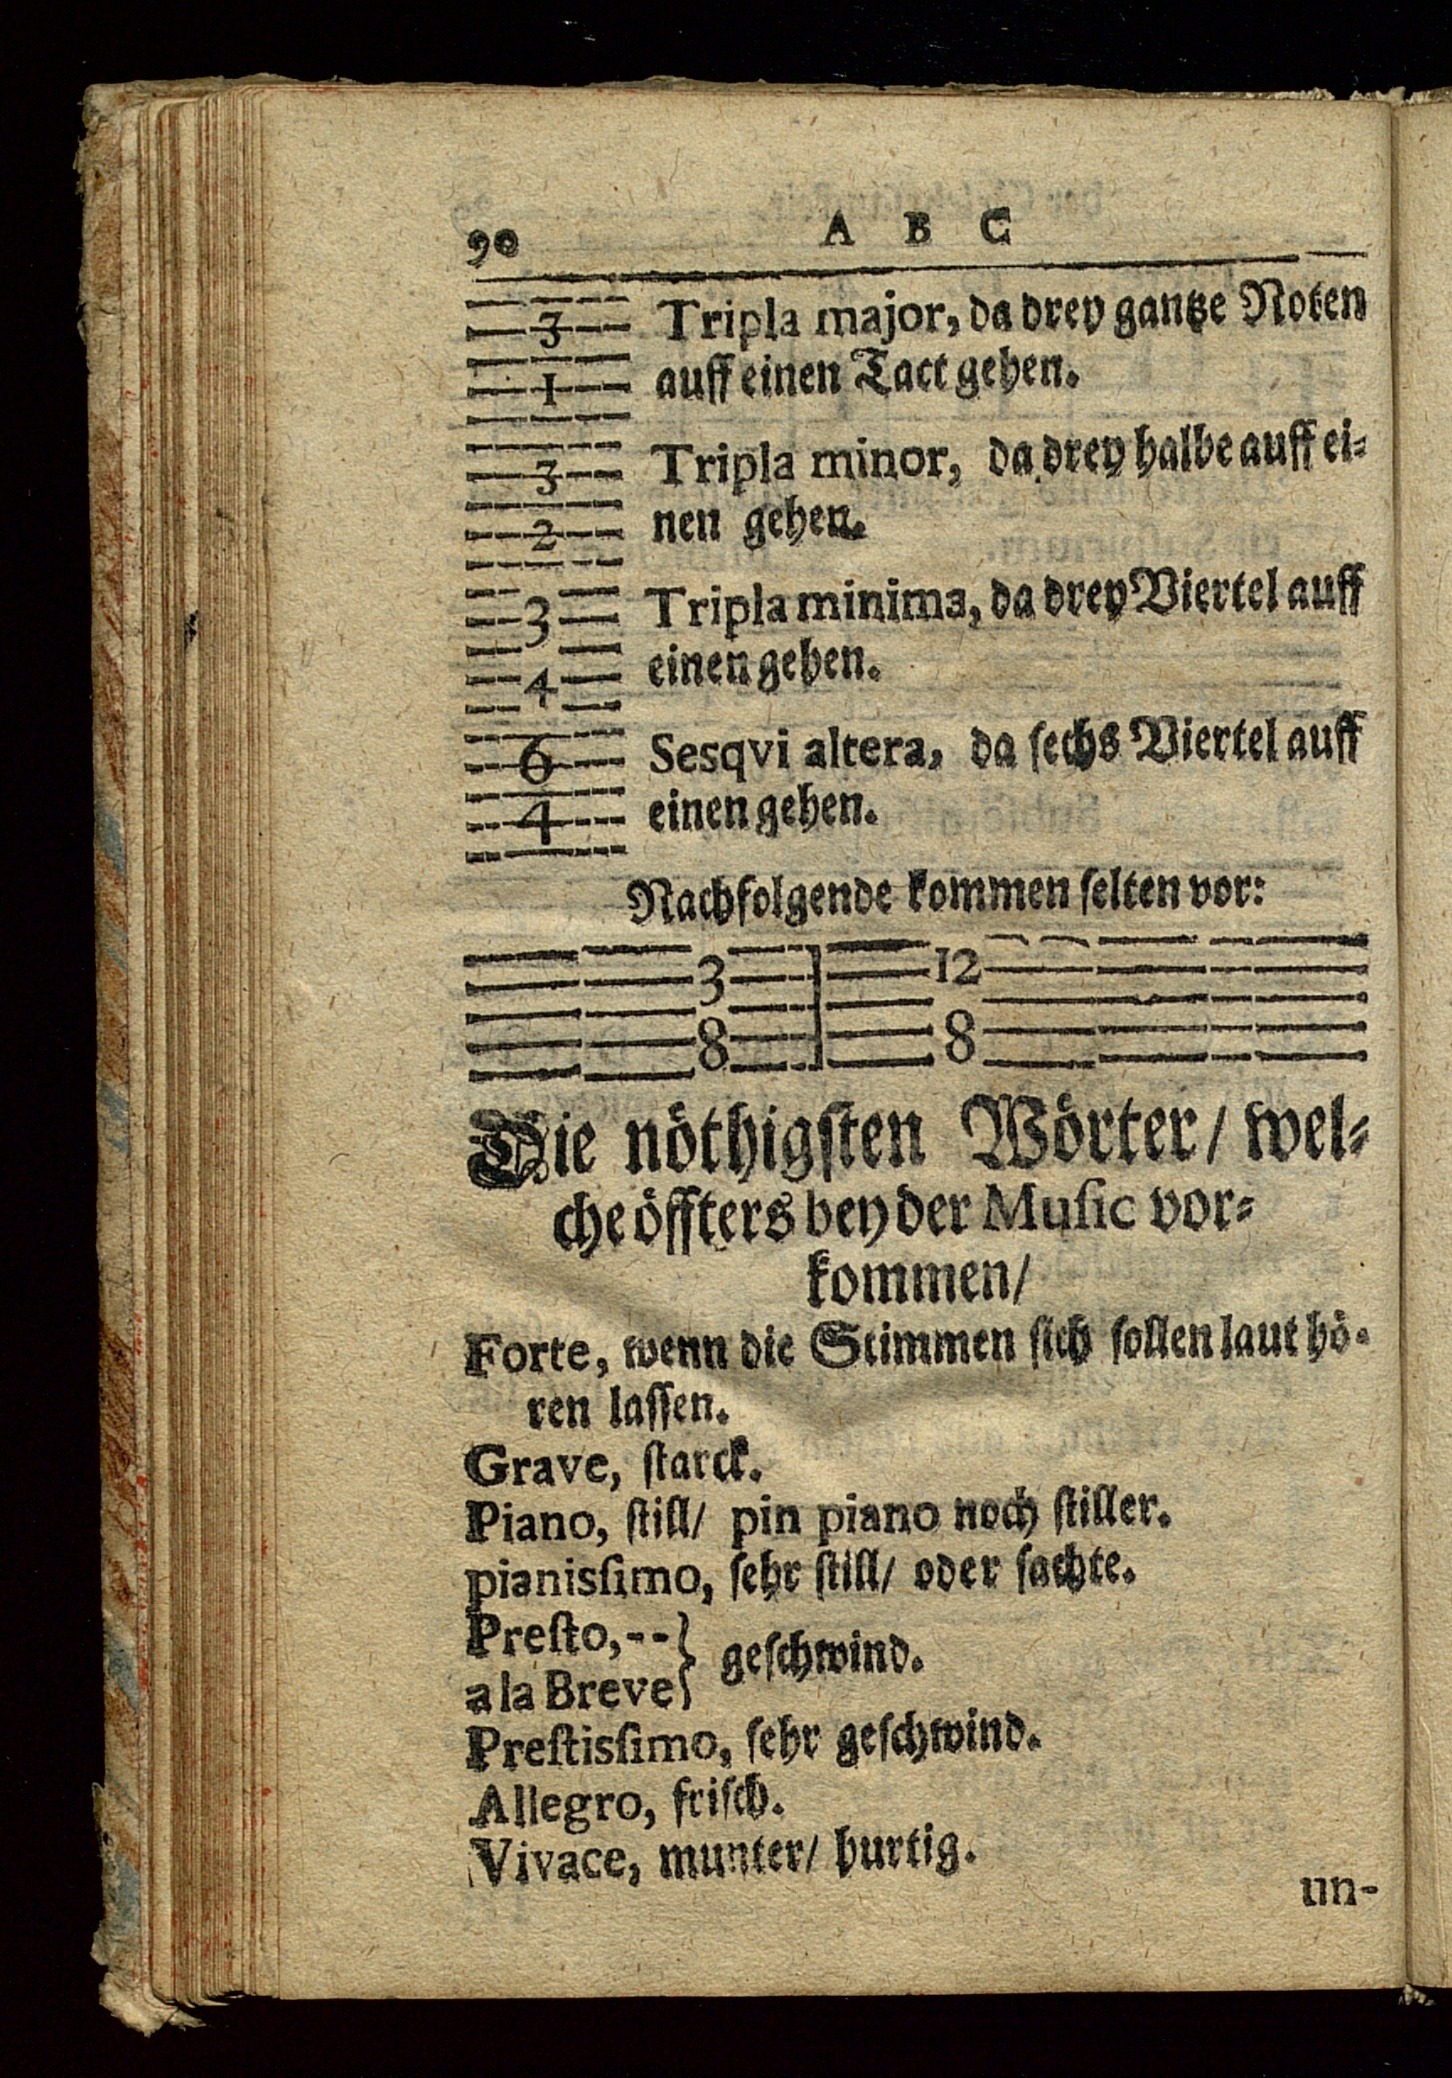 90 A B C
3 Tripla major, da drey gantze Noten
1 auff einen Tact gehen.
3 Tripla minor, da drey halbe auff ei⸗
2 nen gehen.
3 Tripla minima, da drey Viertel auff
4 einen gehen.
6 Sesqvi altera, da ſechs Viertel auff
4 einen gehen.
Nachfolgende kommen ſelten vor:
3 12
8 8
Die nöthigſten Wörter/ wel⸗
che öffters bey der Muſic vor⸗
kommen/
Forte, wenn die Stimmen ſich ſollen laut hö⸗
ren laſſen.
Grave, ſtarck.
Piano, ſtill/ pin piano noch ſtiller.
pianisſimo, ſehr ſtill/ oder ſachte.
Preſto,--} geſchwind.
a la Breve}
Preſtisſimo, ſehr geſchwind.
Allegro, friſch.
Vivace, munter/ hurtig.
un-